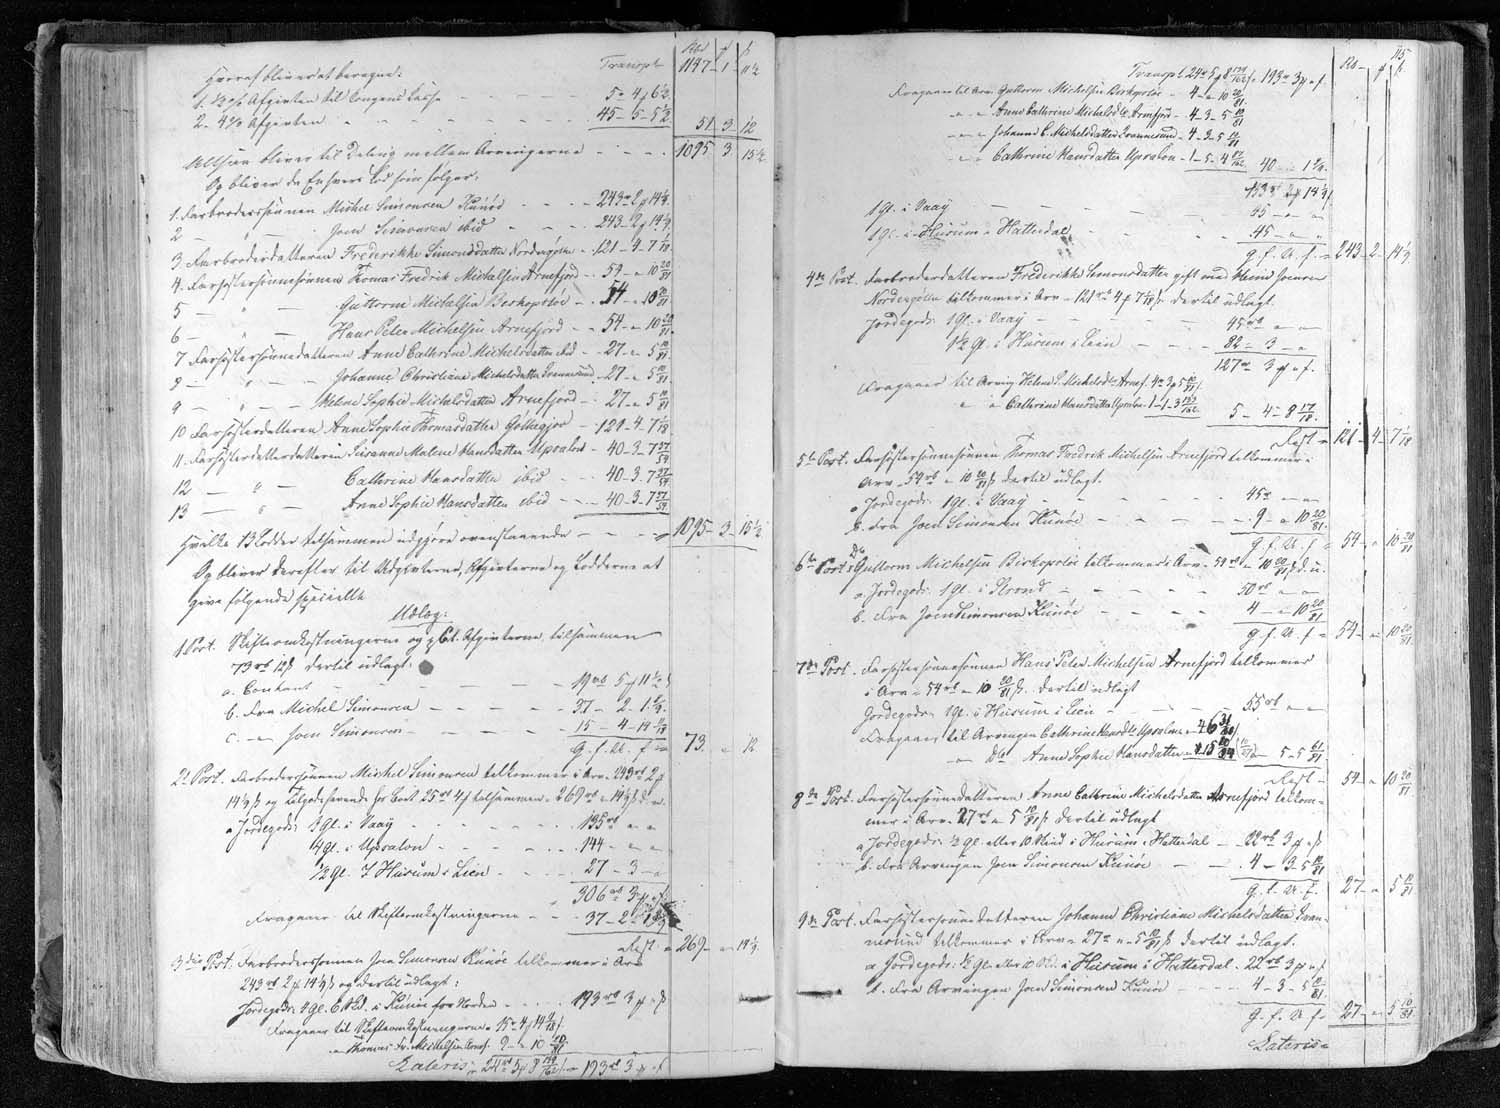 Rbd ₰ s
Transpt 1147 - 1 - 11½
Hvoraf bliver at beregne:
1. ½ pC Afgivten til Kongens Casse 5 " 4 ₰ 6½
2. 4% Afgivten 45 - 5 - 5½ 51 3 12
Altsaa bliver til Deling mellem Arvingerne 1095 3 15½
Og bliver da Enhvers Lod som følger:
1. Farbrodersønnen Michel Simonsen Kunøe 243 " 2 ₰ 14 1/9
2 " Joen Simonsen ibid 243 - 2 ₰ 14 1/9
3 Farbroderdatteren Frederikke Simonsdatter Nordregøte 121 - 4 - 7 1/18
4. Farsøstersønnesønnen Thomas Fredrik Michelsen Arnefjord 54 - " 10 20/81
5 — " — Guttorm Michelsen Birkopstøe 54 - " 10 20/81
6 — — Hans Peter Michelsen Arnefjord 54 - " 10 20/81
7 Farsøstersønnedatteren Anne Cathrine Michelsdatter ibid 27 - " 5 10/81
8 — " — Johanne Christiane Michelsdatter Qvannesund 27 - " 5 10/81
9 — " — Helene Sophie Michelsdatter Arnefjord 27 - " 5 10/81
10 Farsøsterdatteren Anne Sophie Thomasdatter Gøtlegjov 121 - 4 - 7 1/18
11. Farsøsterdatterdatteren Susanne Malene Hansdatter Upsalon 40 - 3 - 7 37/54
12 — " — Cathrine Hansdatter ibid 40 - 3 - 7 37/54
13 — " — Anne Sophie Hansdatter ibid 40 - 3 - 7 37/54
Hvilke 13 Lodder tilsammen udgjøre ovenstaaende 1095 - 3 - 15½
Og bliver derefter til Udgivterne, Afgivterne og Lodderne at
give følgende specielle
Udlæg:
1 Post. Skifteomkostningerne og pCt. Afgivterne, tilsammen
73 rb 12 s dertil udlagt:
a. Contant 19 rb 5 ₰ 11½ s
b. Fra Michel Simonsen 37 - 2 - 1 8/9
c. " Joen Simonsen 15 - 4 - 14
g. f. U. f = 73 " 12
2d Post. Farbrodersønnen Michel Simonsen tilkommer i Arv 243 rb 2 ₰
14 1/9 s og tilgodehavende for Kost 25 rb 4 ₰ tilsammen 269 rb " 14 1/9 s
a. Jordegods 3 gl. i Vaag 135 rb " "
4 gl. i Upsalon 144 - " "
½ gl. i Husum i Lien 27 - 3 - "
306 rb 3 ₰ " s
Fragaaer til Skifteomkostningerne 37 - 2 - 1 8/9
Rest = 269 - " 14 1/9
3die Post. Farbrodersønnen Joen Simonsen Kunøe tilkommer i Arv
243 rb 2 ₰ 14 1/9 s og dertil udlagt:
Jordegods 4 gl. 6 skd. i Kunøe for Norden 193 rb 3 ₰ " s
Fragaaer til Skifteomkostningerne 15 " 4 ₰ 14
" Thomas Fr. Michelsen Arnef. 9 - " 10 20/81
Lateris 24 rb 5 ₰ 8 149/162 s " 193 rb 3 ₰ " s
115
Rb - ₰ s
Transpt 24 rb 5 ₰ 8 149/162 s 193 rb 3 ₰ " s
Fragaaer til Arv. Guttorm Michelsen Birkopstøe 4 - " 10 20/81
" " Anne Cathrine Michelsdtr Arnefjord 4 - 3 - 5 10/81
" " Johanne C. Michelsdatter Qvannesund 4 - 3 - 5 10/81
" " Cathrine Hansdatter Upsalon 1 - 5 - 4 40 - 1
153 rb 2 ₰ 14 1/9 s
1 gl. i Vaag 45 - " "
1 gl. i Husum i Hatterdal 45 - " "
g. f. U. f. = 243 - 2 - 14 1/9
4de Post. Farbroderdatteren Frederikke Simonsdatter gift med Heine Joensen
Nordregøte tilkommer i Arv 121 rb 4 ₰ 7 1/18 s dertil udlagt.
Jordegods 1 gl. i Vaag 45 rb " "
1½ gl. i Husum i Lien 82 - 3 - "
127 rb 3 ₰ " s
Fragaaer til Arving Helene S. Michelsdtr Arnef. 4 " 3 ₰ 5 10/81
" " Cathrine Hansdatter Upsalon 1 - 1 - 3 5 - 4 - 8 17/18
Rest = 121 - 4 - 7 1/18
5te Post. Farsøstersønnesønnen Thomas Fredrik Michelsen Arnefjord tilkommer i
Arv 54 rb " 10 20/81 s dertil udlagt.
a Jordegods 1 gl. i Vaag 45 rb " "
b. Fra Joen Simonsen Kunøe 9 - " 10 20/81
g. f. U. f = 54 - " 10 20/81
6te Post. Do Guttorm Michelsen Birkopstøe tilkommer i Arv 54 rb " 10 20/81 s d. u.
a Jordegods 1 gl. i Strond 50 rb " "
b. Fra Joen Simonsen Kunøe 4 - " 10 20/81
g. f. U. f = 54 - " 10 20/81
7de Post. Farsøstersønnesønnen Hans Peter Michelsen Arnefjord tilkommer
i Arv 54 rb " 10 20/81 s. dertil udlagt
Jordegods 1 gl. i Husum i Lien 55 rb " "
Fragaaer til Arvingen Cathrine Hansdtr Upsalon
" Do Anne Sophie Hansdatter " - 5 - 5 61/81
Rest - 54 - " 10 20/81
8de Post. Farsøstersønnedatteren Anne Cathrine Michelsdatter Arnefjord tilkom-
mer i Arv 27 rb " 5 10/81 s dertil udlagt
a Jordegods ½ gl. eller 10 Skind i Husum i Hatterdal 22 rb 3 ₰ " s
b. Fra Arvingen Joen Simonsen Kunøe 4 - 3 - 5 10/81
g. f. U. f. 27 - " 5 10/81
9de Post. Farsøstersønnedatteren Johanne Christiane Michelsdatter Qvan-
nesund tilkommer i Arv 27 rb " 5 10/81 s dertil udlagt.
a Jordegods ½ gl. eller 10 Skd. i Husum i Hatterdal 22 rb 3 ₰ " s
b. Fra Arvingen Joen Simonsen Kunøe 4 - 3 - 5 10/81
g. f. U. f = 27 - " 5 10/81
Lateris